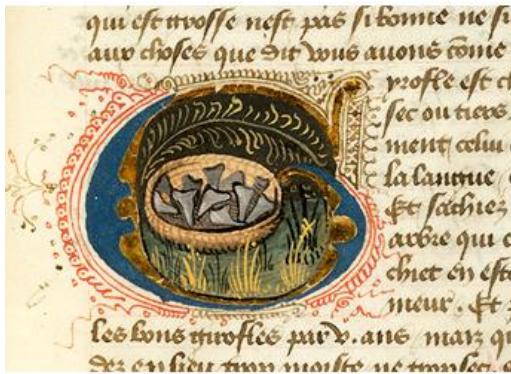 qui est grosse nest pas si bonne ne si
aux choses que dit vous auons cõme
yrofle est ch
sec ou tiers
ment celui
la langue
Et sachiez
arbre qui c
chiet en este
meur. Et
les bons girofles par v. ans, maiz qu
dez en lieu trop moiste ne trop sec